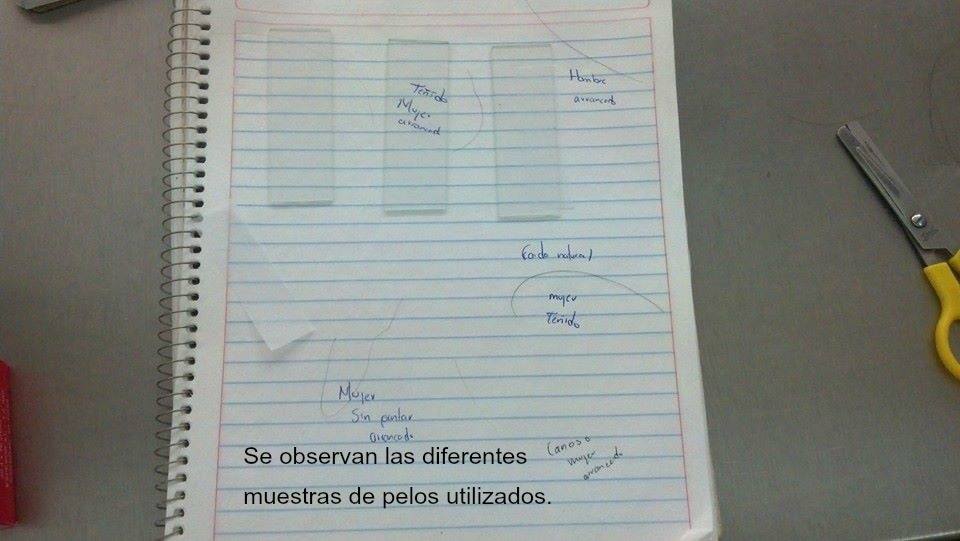 Teñido
Mujer
arrancado
Hombre
arrancado
Caida natural
mujer
Teñido
Mujer
Sin pintar
arrancado
Canoso
mujer
arrancado
Se observan las diferentes
muestras de pelos utilizados.